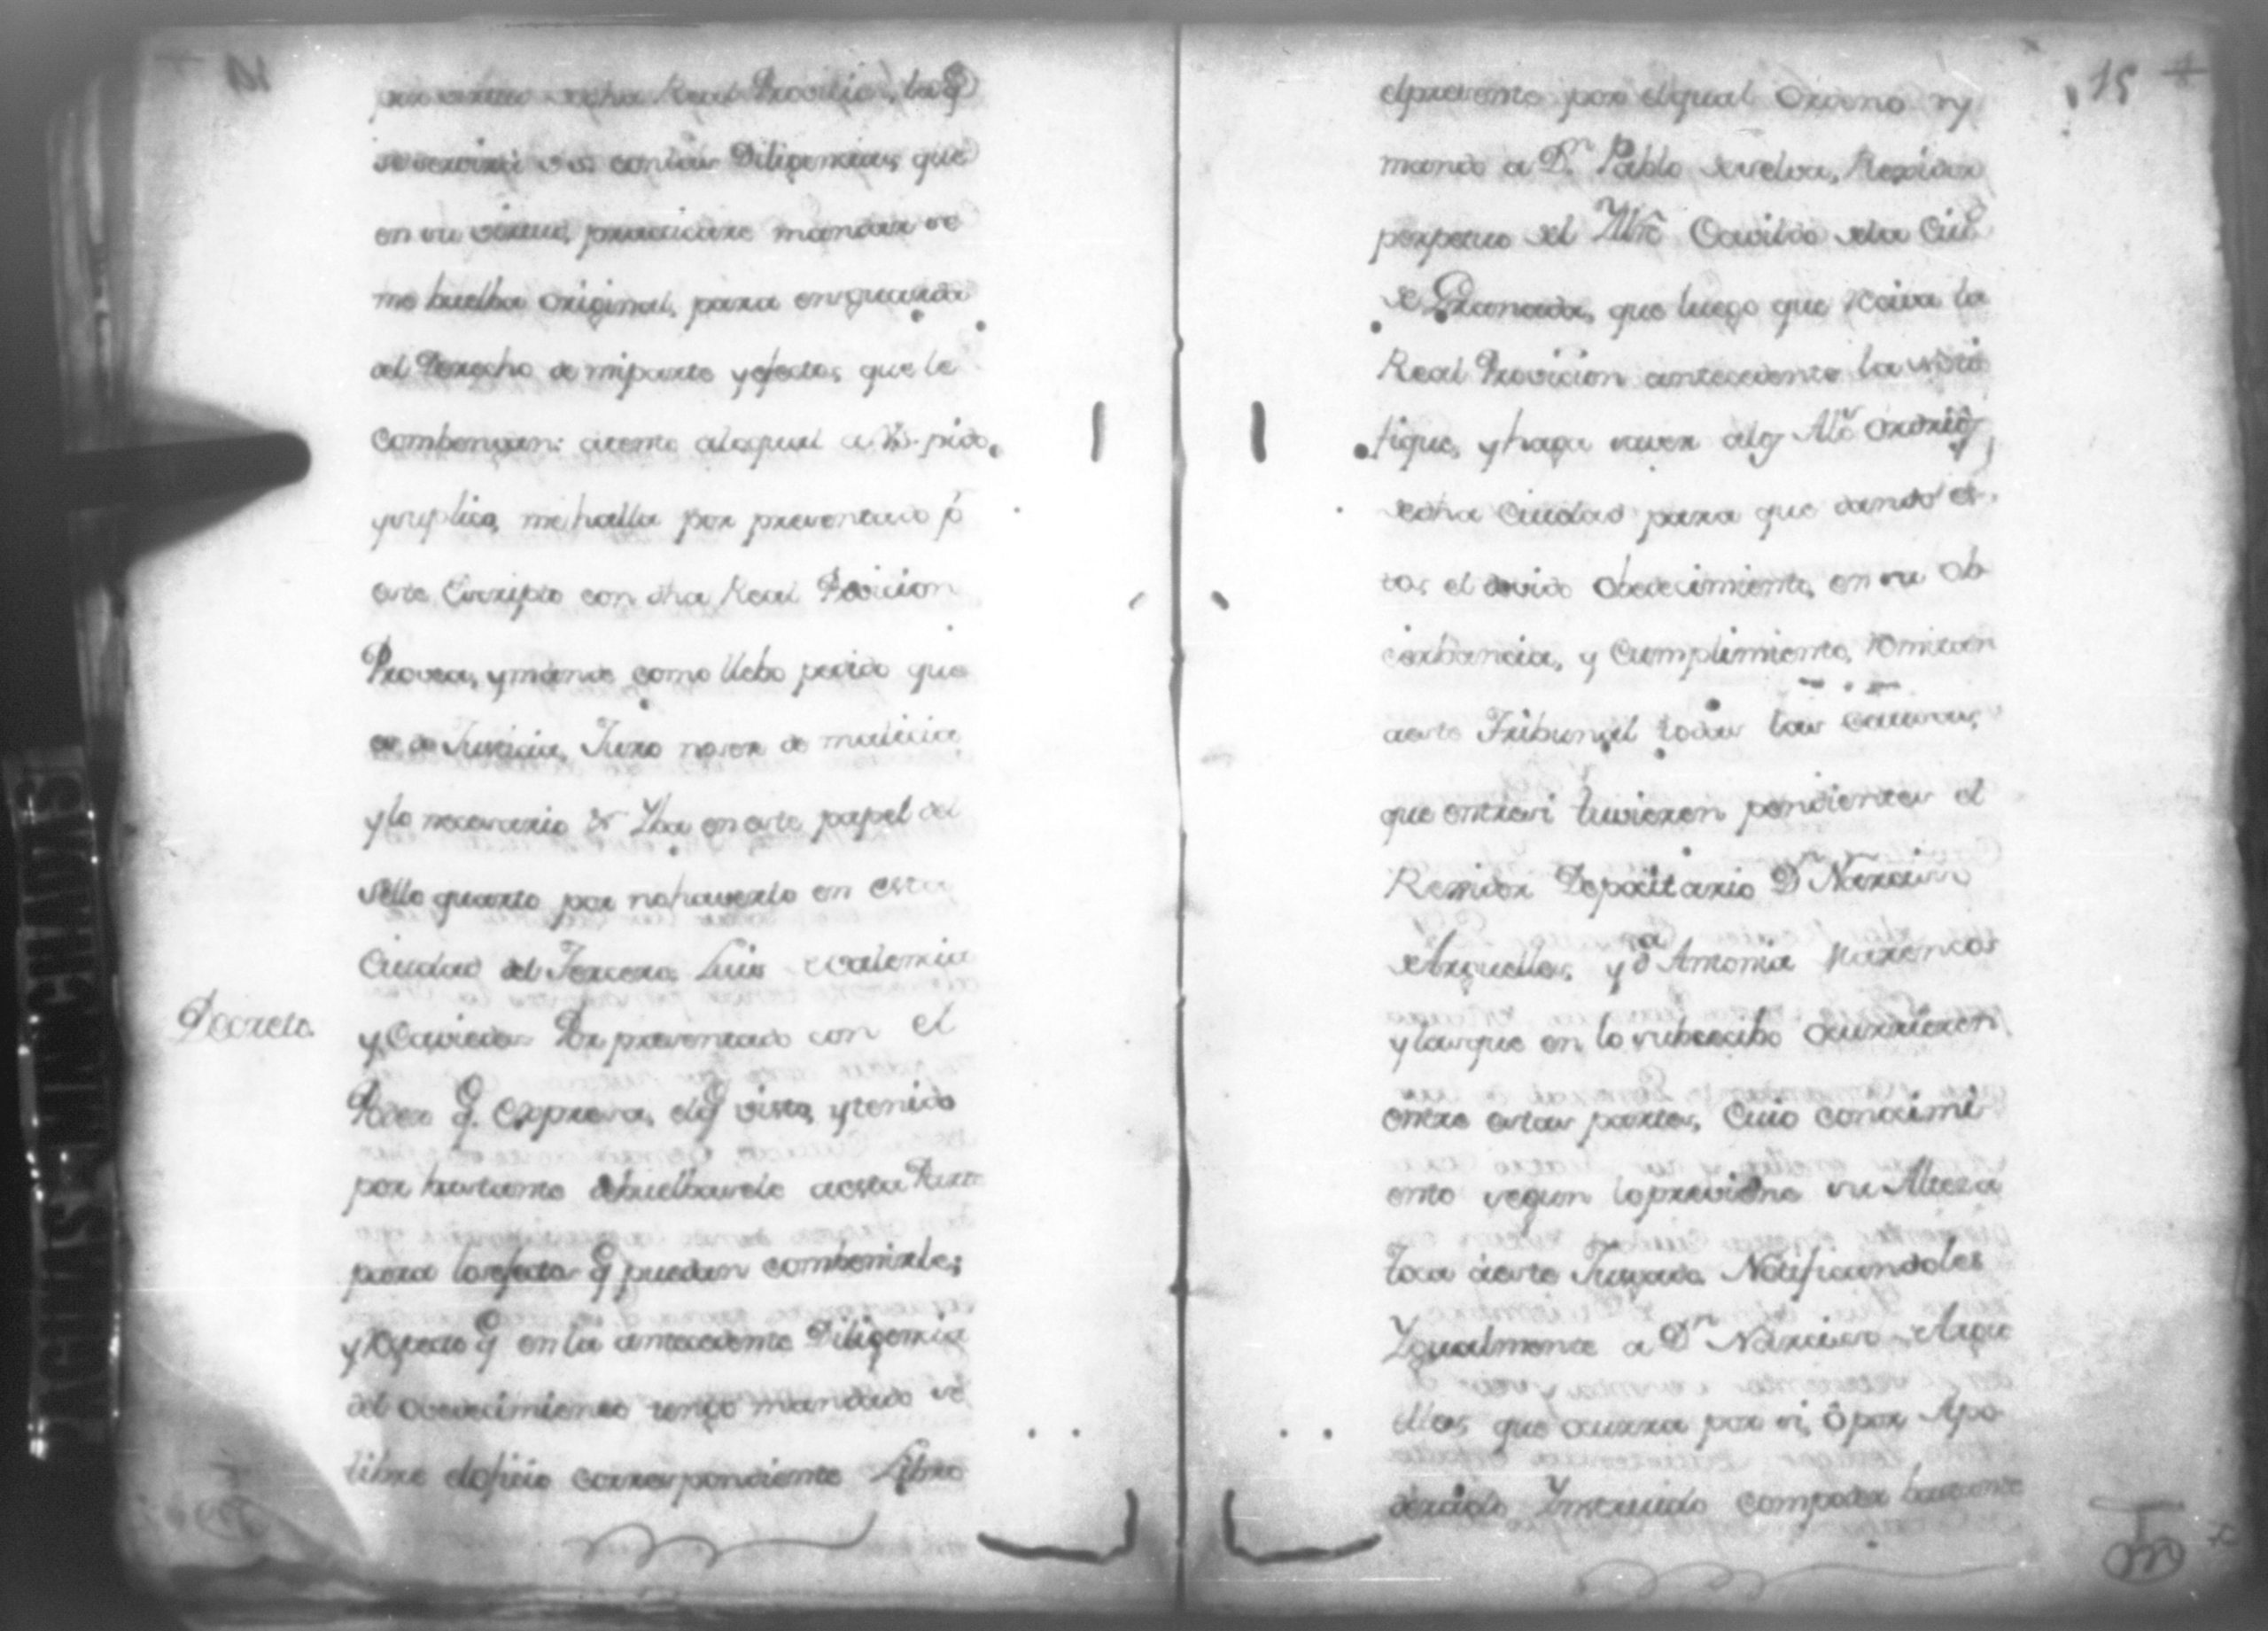 dha Real Provicio, la q̃
se servirá con las Diligencias, que
en su virtud, practicare mandar se
me buelba original, para en guarda
del Derecho de mi parte y efectos, que le
combengan: atento a lo qual a Vs. pido,
y suplico, me halla por presentado pò
este Escripto con dha Real Provicion
Provea, y mande como llebo pedido que
es de Justicia, Juro no ser de malicia
y lo necesario &ª Yba en este papel del
sello quarto por no haverlo en esta
Ciudad del Tercero. Luis de Valencia
Decreto.
y Caviedes Por presentado con el
Poder q̃. Expresa, el q̃ visto, y tenido
por bastante debuelbasele a esta Parte
para los efectos q̃ puedan combenirle;
y respecto q̃ en la antecedente Diligencia
del obedecimiento tengo mandado se
libre el oficio correspondiente Libro
15
el presente por el qual Ordeno y
mando a Dn. Pablo de Selva, Rexidor
perpetuo del Yltrẽ Cavildo de la Ciud
de Granada, que luego que reciva la
Real Provicion antecedente la noti
fique, y haga saver a los Alcs ordinãrios
de dha Ciudad para que dando es-
tos el devido Obedecimiento, en su ob
cerbancia, y Cumplimiento, remitan
a este Tribunal todas las causas,
que entre si tuvieren pendientes el
Rexidor Depocitario Dn Narciso
de Arguellos, y da Antonia Marencos
y las que en lo subcecibo ocurrieren
entre estas partes, Cuio conocimi
ento segun lo previene su Alteza
toca á este Jusgado. Notificandoles
Ygualmente a Dn Narciso de Argue
lles, que ocurra por si, ô por Apo
derado Ynstruido com poder bastante